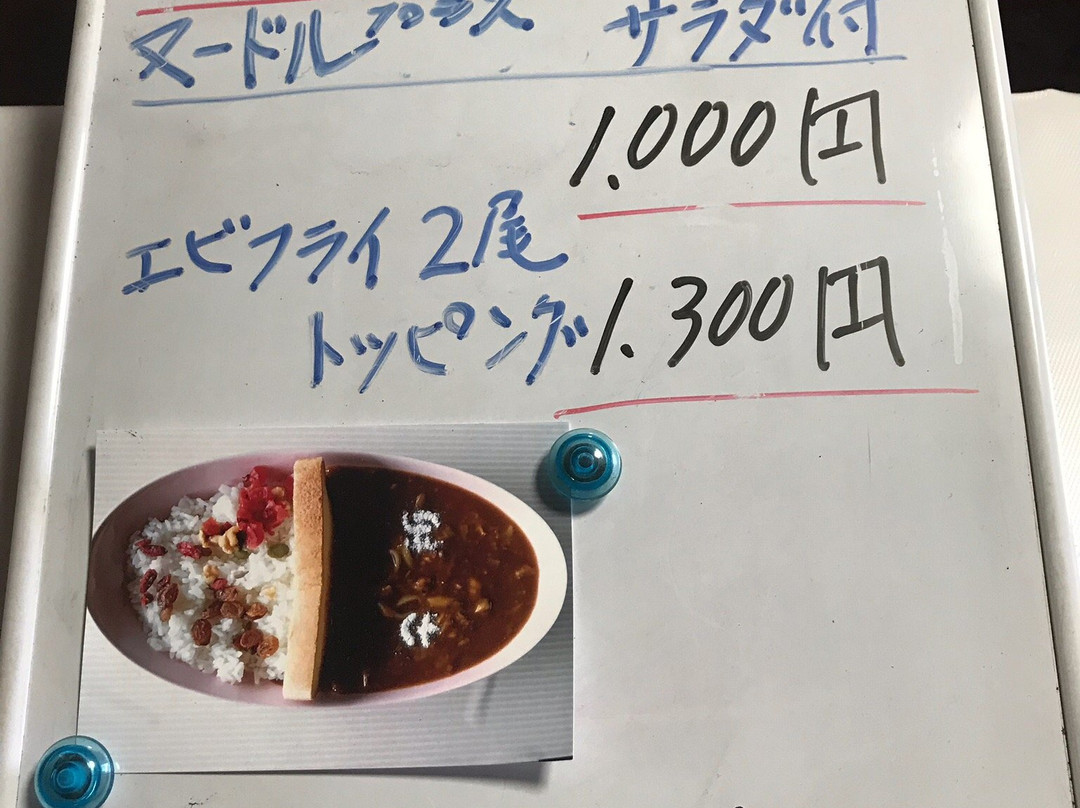 ヌードル サラダ付
1.000円
エビフライ2尾
トッピング 1.300円